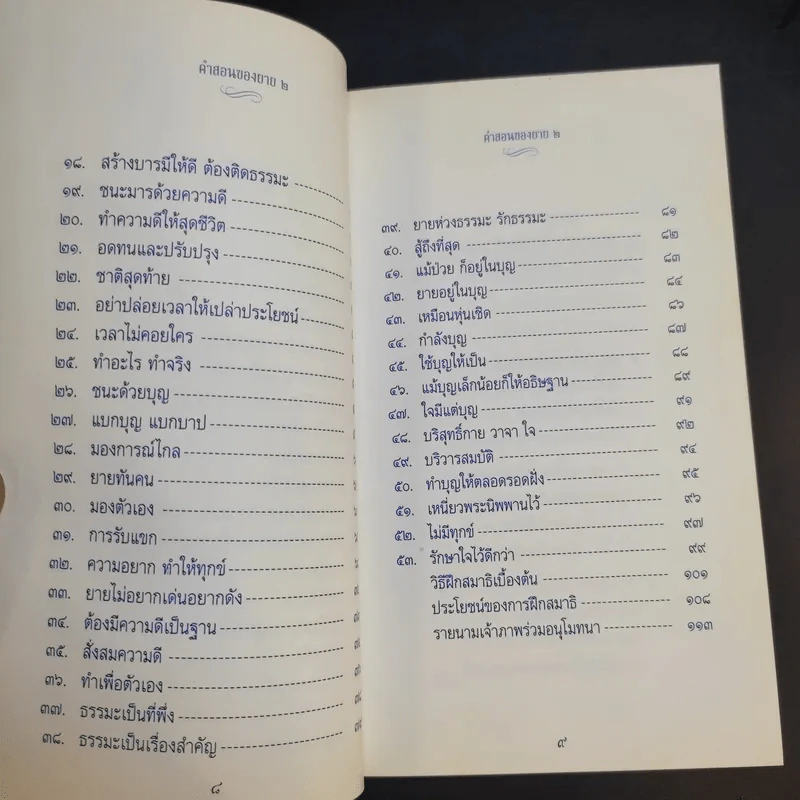 คำสอนของยาย ๒
๑๘. สร้างบารมีให้ดี ต้องติดธรรมะ
๑๙. ชนะมารด้วยความดี
๒๐. ทำความดีให้สุดชีวิต
๒๑. อดทนและปรับปรุง
๒๒. ชาติสุดท้าย
๒๓. อย่าปล่อยเวลาให้เปล่าประโยชน์
๒๔. เวลาไม่คอยใคร
๒๕. ทำอะไร ทำจริง
๒๖. ชนะด้วยบุญ
๒๗. แบกบุญ แบกบาป
๒๘. มองการณ์ไกล
๒๙. ยายทันคน
๓๐. มองตัวเอง
๓๑. การรับแขก
๓๒. ความอยาก ทำให้ทุกข์
๓๓. ยายไม่อยากเด่นอยากดัง
๓๔. ต้องมีความดีเป็นฐาน
๓๕. สั่งสมความดี
๓๖. ทำเพื่อตัวเอง
๓๗. ธรรมะเป็นที่พึ่ง
๓๘. ธรรมะเป็นเรื่องสำคัญ
๘
คำสอนของยาย ๒
๓๙. ยายห่วงธรรมะ รักธรรมะ ๘๑
๔๐. สู้ถึงที่สุด ๘๒
๔๑. แม้ป่วย ก็อยู่ในบุญ ๘๓
๔๒. ยายอยู่ในบุญ ๘๔
๔๓. เหมือนหุ่นเชิด ๘๖
๔๔. กำลังบุญ ๘๗
๔๕. ใช้บุญให้เป็น ๘๘
๔๖. แม้บุญเล็กน้อยก็ให้อธิษฐาน ๘๙
๔๗. ใจมีแต่บุญ ๙๑
๔๘. บริสุทธิ์กาย วาจา ใจ ๙๒
๔๙. บริวารสมบัติ ๙๔
๕๐. ทำบุญให้ตลอดรอดฝั่ง ๙๕
๕๑. เหนี่ยวพระนิพพานไว้ ๙๖
๕๒. ไม่มีทุกข์ ๙๗
๕๓. รักษาใจไว้ดีกว่า ๙๙
วิธีฝึกสมาธิเบื้องต้น ๑๐๑
ประโยชน์ของการฝึกสมาธิ ๑๐๘
รายนามเจ้าภาพร่วมอนุโมทนา ๑๑๓
๙